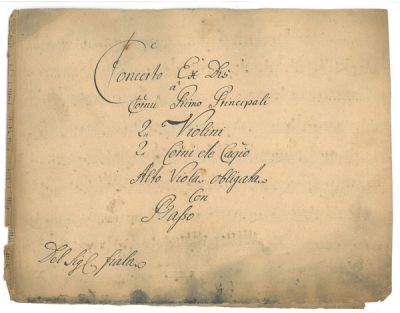 Concerto Ex Dis
a
Cornu Primo Principali
2. Violini
2. Corni de Caccia
Alto Viola obligata
Con
Basso
Del Sig: Fiala